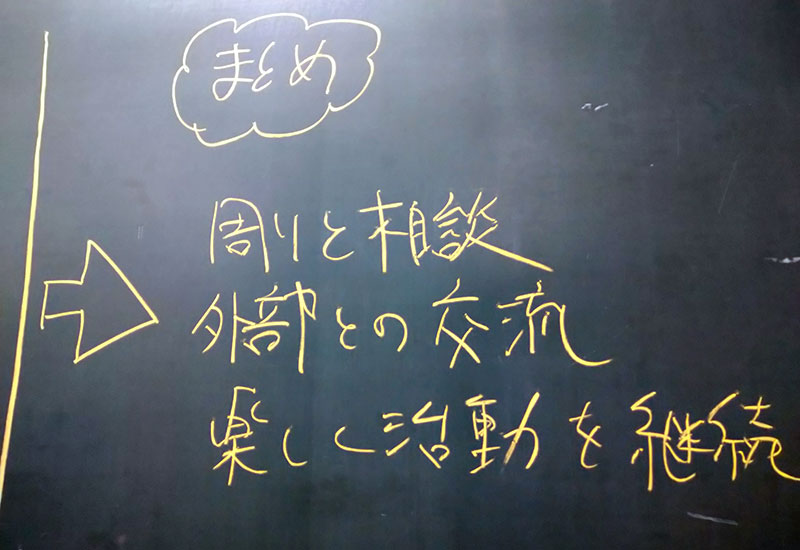 まとめ
周りと相談
外部との交流
楽しく活動を継続